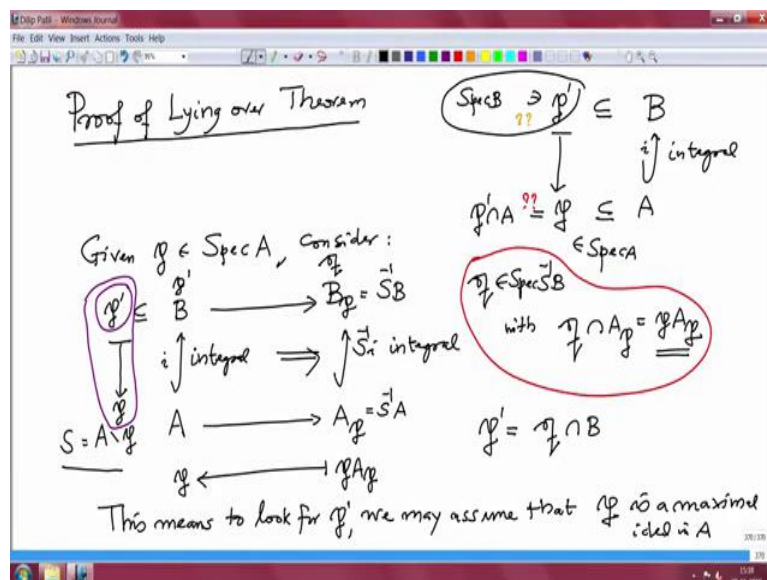 Dilip Patil - Windows Journal
File Edit View Insert Actions Tools Help
Proof of Lying over Theorem
Spec B ∋ 𝔭' ⊆ B
??
i integral
𝔭'∩A ?? = 𝔭 ⊆ A
∈ Spec A
Given 𝔭 ∈ Spec A, consider:
𝔭' 𝔮
𝔭' ⊆ B → B_𝔭 = S⁻¹B
𝔮 ∈ Spec S⁻¹B
with 𝔮 ∩ A_𝔭 = 𝔭A_𝔭
i integral ⇒ S⁻¹i integral
𝔭
S = A∖𝔭 A → A_𝔭 = S⁻¹A
𝔭' = 𝔮 ∩ B
𝔭 ← 𝔭A_𝔭
This means to look for 𝔭', we may assume that 𝔭 is a maximal
ideal in A
370/370
370
15:38